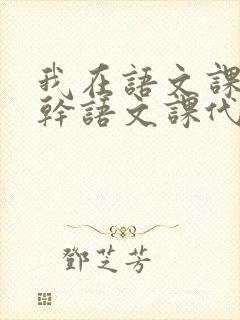 我在語文課
幹語文課代
鄧芝芳